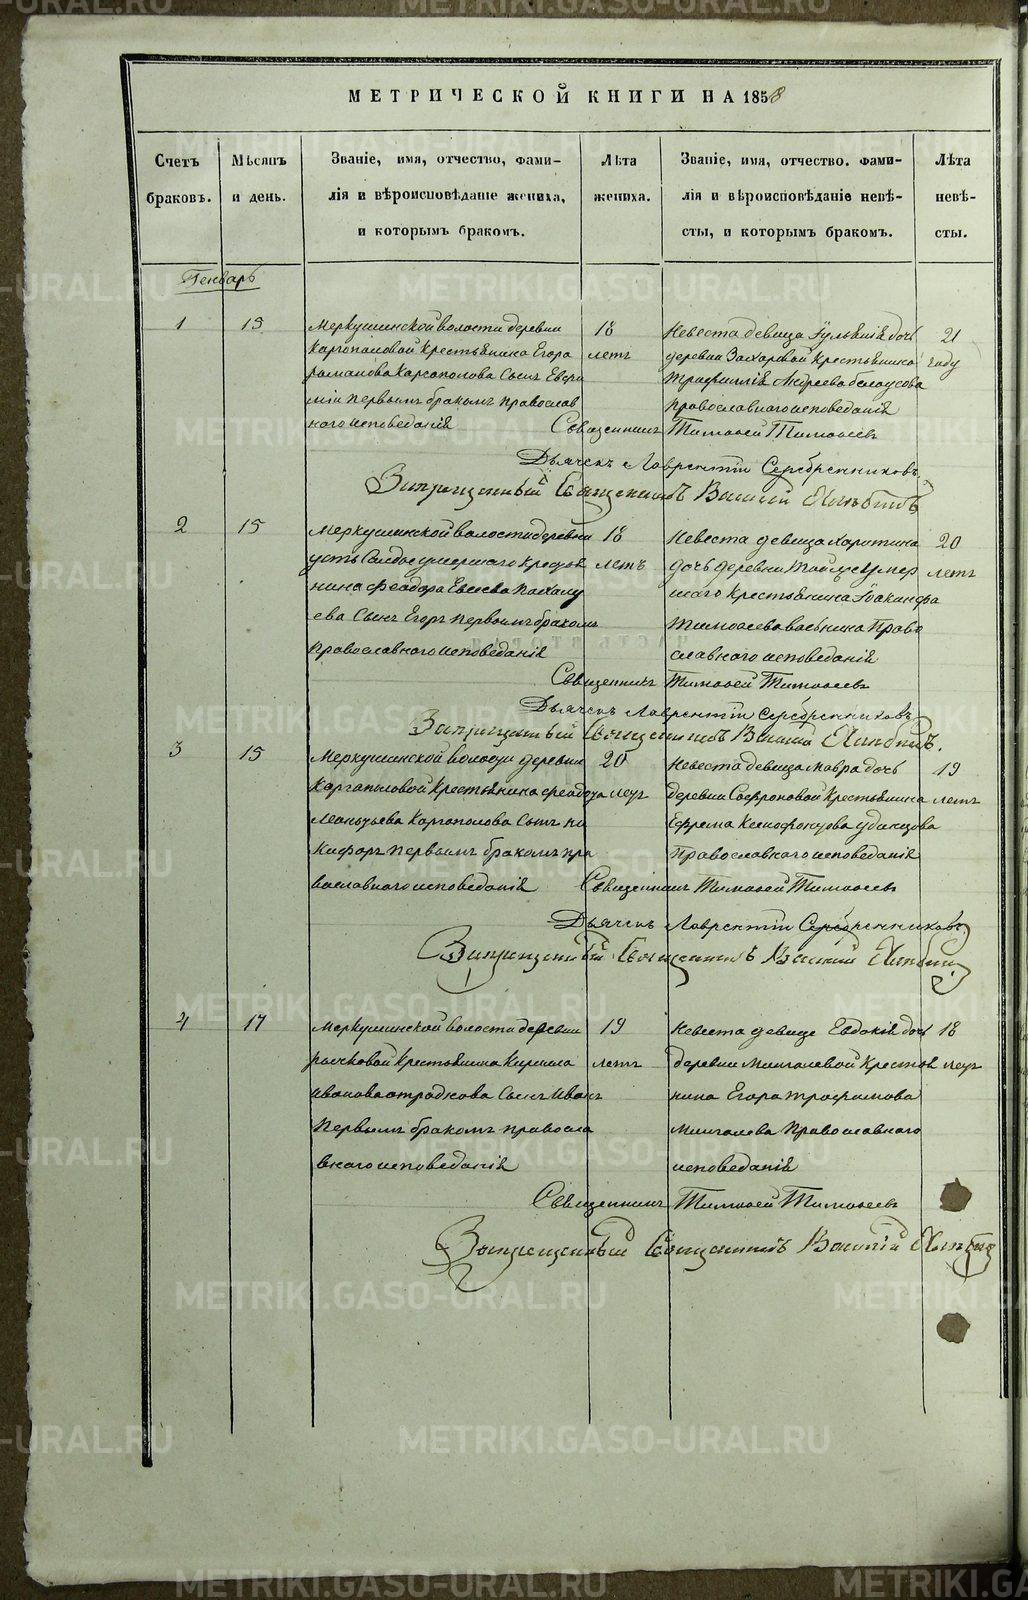 МЕТРИЧЕСКОЙ КНИГИ НА 1858
Счетъ браковъ.
Мѣсяцъ и день.
Званіе, имя, отчество, фами-
лія и вѣроисповѣданіе жениха,
и которымъ бракомъ.
Лѣта жениха.
Званіе, имя, отчество. фами-
лія и вѣроисповѣданіе невѣ-
сты, и которымъ бракомъ.
Лѣта невѣ-
сты.
Генварь
1 15
Меркушинской волости деревни
Каргополовой Крестьянина Егора
романова Каргополова Сынъ
первымъ бракомъ православ
наго исповеданія
18
летъ
Невеста девица дочь
деревни Захаровой Крестьянина
Андреева белоусова
православнаго исповеданія
21
году
Священникъ Тимофей Тимофеевъ
Дьячекъ Лаврентій Серебренниковъ
Запрещенный Священникъ Василій
2 15
Меркушинской волости деревни
усть Салдое умершаго Крестья
нина Феодора Евсеева
ева Сынъ Егоръ первымъ бракомъ
православнаго исповеданія
18
летъ
Невеста девица Харитина
дочь деревни умер
шаго Крестьянина
Тимофеева Право
славнаго исповеданія
20
летъ
Священникъ Тимофей Тимофеевъ
Дьячекъ Лаврентій Серебренниковъ
Запрещенный Священникъ Василій
3 15
Меркушинской волости деревни
Каргополовой Крестьянина Феодора
Леонтьева Каргополова Сынъ Ни
кифоръ первымъ бракомъ пра
вославнаго исповеданія
20
летъ
Невеста девица Мавра дочь
деревни Софроновой Крестьянина
Ефрема Ксенофонтова удинцова
Православнаго исповеданія
19
летъ
Священникъ Тимофей Тимофеевъ
Дьячекъ Лаврентій Серебренниковъ
Запрещенный Священникъ Василій
4 17
Меркушинской волости деревни
Крестьянина Кирила
иванова отраднова Сынъ Иванъ
Первымъ бракомъ правосла
внаго исповеданія
19
летъ
Невеста девица Евдокія дочь
деревни Мингалевой Крестья
нина Егора трофимова
Мингалева Православнаго
исповеданія
18
летъ
Священникъ Тимофей Тимофеевъ
Запрещенный Священникъ Василій
METRIKI.GASO-URAL.RU